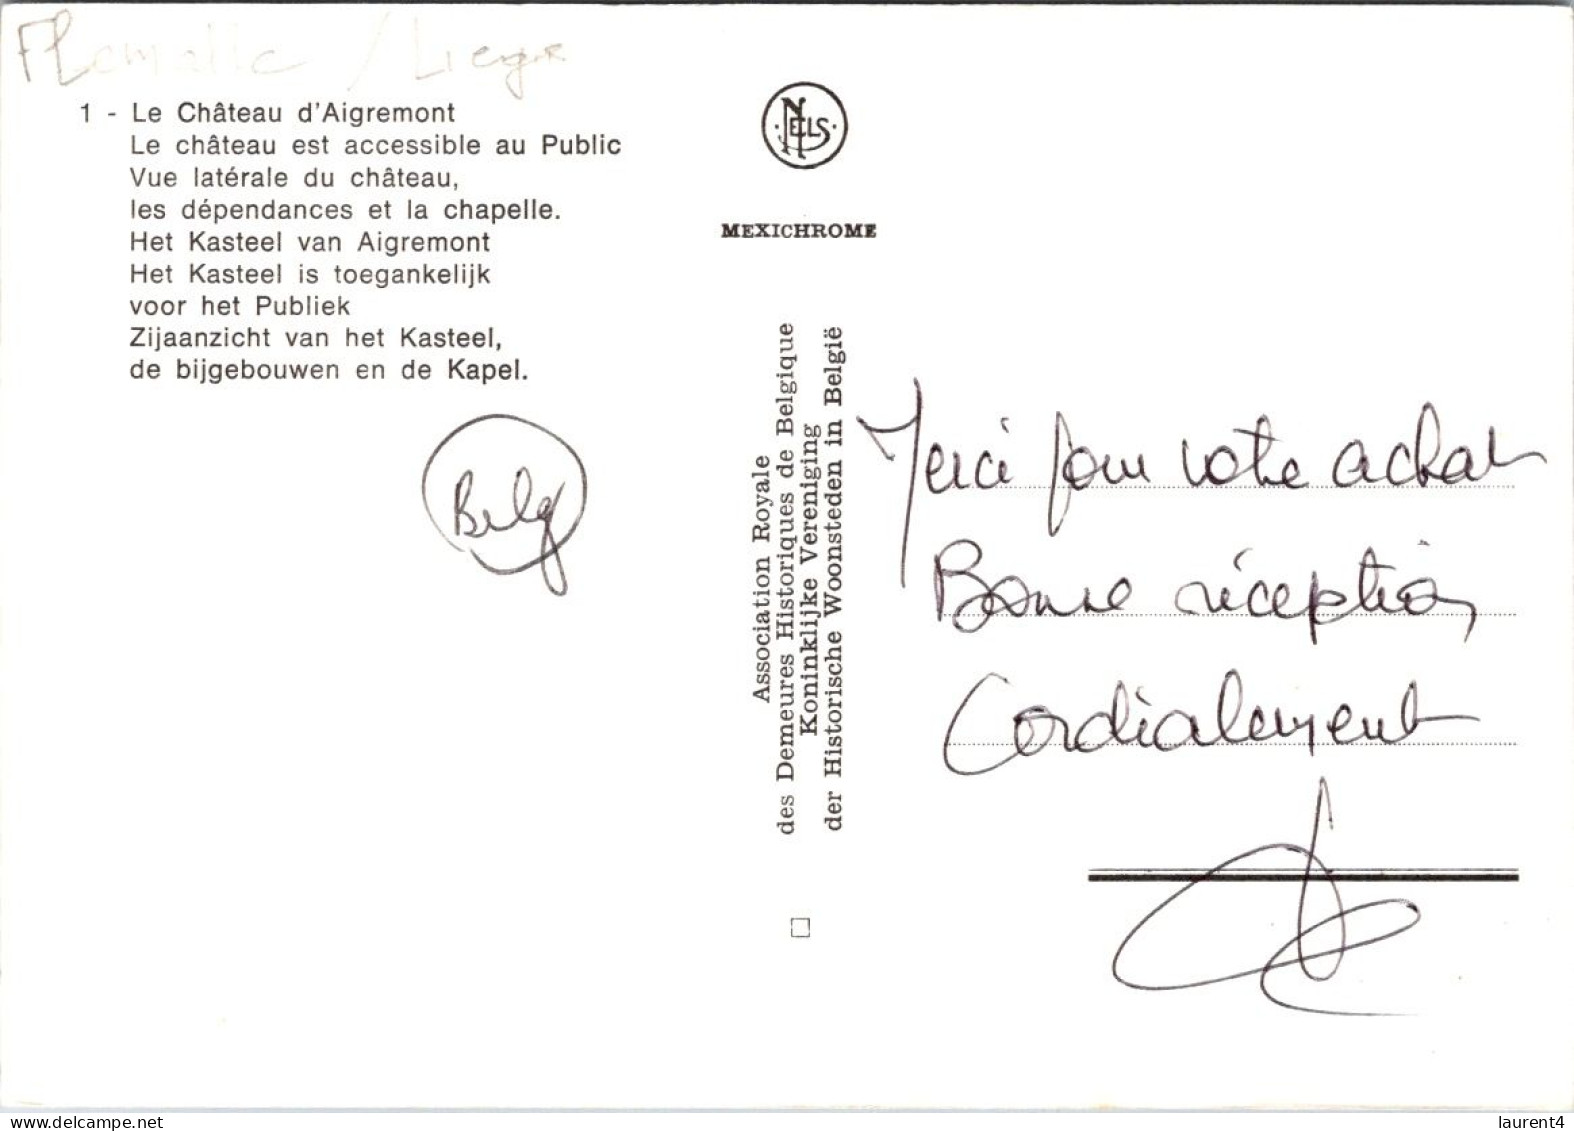 Flemalle / Liege
1 - Le Château d'Aigremont
Le château est accessible au Public
Vue latérale du château,
les dépendances et la chapelle.
Het Kasteel van Aigremont
Het Kasteel is toegankelijk
voor het Publiek
Zijaanzicht van het Kasteel,
de bijgebouwen en de Kapel.
Belg
NELS
MEXICHROME
Association Royale
des Demeures Historiques de Belgique
Koninklijke Vereniging
der Historische Woonsteden in België
Merci pour votre achat
Bonne réception
Cordialement
laurent4